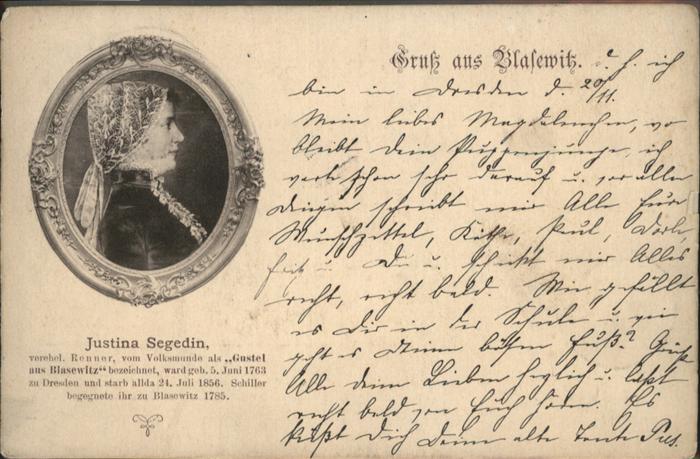 Gruß aus Blasewitz. d. h. ich
bin in Dresden d. 20/11.
Mein liebes Magdalenchen, wo
bleibt Dein Puppenjunge, ich
warte schon sehr darauf u. vor allen
Dingen schreibt mir Alle Eure
Wunschzettel, Käthe, Paul, Dorle,
Fritz u. Du u. schickt mir Alles
recht, recht bald. Wie gefällt
es Dir in der Schule u. wie
geht es Deinem bösen Fuß? Grüße
Alle deine Lieben herzlich u. laßt
recht bald von Euch hören. Es
küßt Dich Deine alte Tante
Justina Segedin,
verehel. Renner, vom Volksmunde als „Gustel
aus Blasewitz“ bezeichnet, ward geb. 5. Juni 1763
zu Dresden und starb allda 24. Juli 1856. Schiller
begegnete ihr zu Blasewitz 1785.